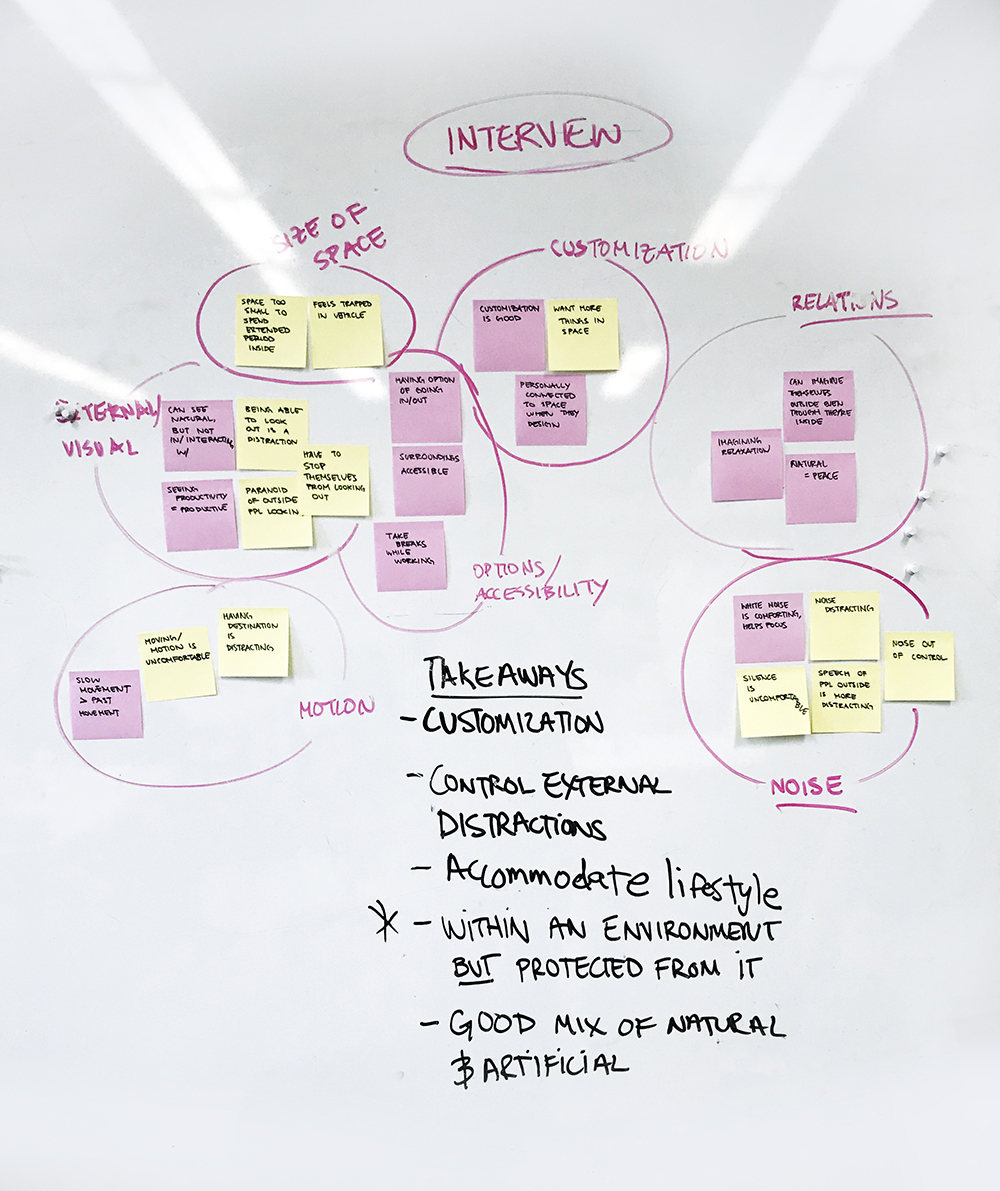 INTERVIEW
SIZE OF
SPACE
SPACE TOO
SMALL TO
SPEND
EXTENDED
PERIOD
INSIDE
FEELS TRAPPED
IN VEHICLE
CUSTOMIZATION
CUSTOMIZATION
IS GOOD
WANT MORE
THINGS IN
SPACE
PERSONALLY
CONNECTED
TO SPACE
WHEN THEY
DESIGN
RELATIONS
CAN IMAGINE
THEMSELVES
OUTSIDE EVEN
THOUGH THEY'RE
INSIDE
IMAGINING
RELAXATION
NATURAL
= PEACE
EXTERNAL/
VISUAL
CAN SEE
NATURAL,
BUT NOT
IN/INTERACTING
W/
BEING ABLE
TO LOOK
OUT IS A
DISTRACTION
HAVE TO
STOP
THEMSELVES
FROM LOOKING
OUT
SEEING
PRODUCTIVITY
= PRODUCTIVE
PARANOID
OF OUTSIDE
PPL LOOKIN
HAVING OPTION
OF GOING
IN/OUT
SURROUNDINGS
ACCESSIBLE
TAKE
BREAKS
WHILE
WORKING
OPTIONS/
ACCESSIBILITY
SLOW
MOVEMENT
> FAST
MOVEMENT
MOVING/
MOTION IS
UNCOMFORTABLE
HAVING
DESTINATION
IS
DISTRACTING
MOTION
WHITE NOISE
IS COMFORTING,
HELPS FOCUS
NOISE
DISTRACTING
NOISE OUT
OF CONTROL
SILENCE IS
UNCOMFORTABLE
SPEECH OF
PPL OUTSIDE
IS MORE
DISTRACTING
NOISE
TAKEAWAYS
- CUSTOMIZATION
- CONTROL EXTERNAL
DISTRACTIONS
- Accommodate lifestyle
* - WITHIN AN ENVIRONMENT
BUT PROTECTED FROM IT
- GOOD MIX OF NATURAL
& ARTIFICIAL